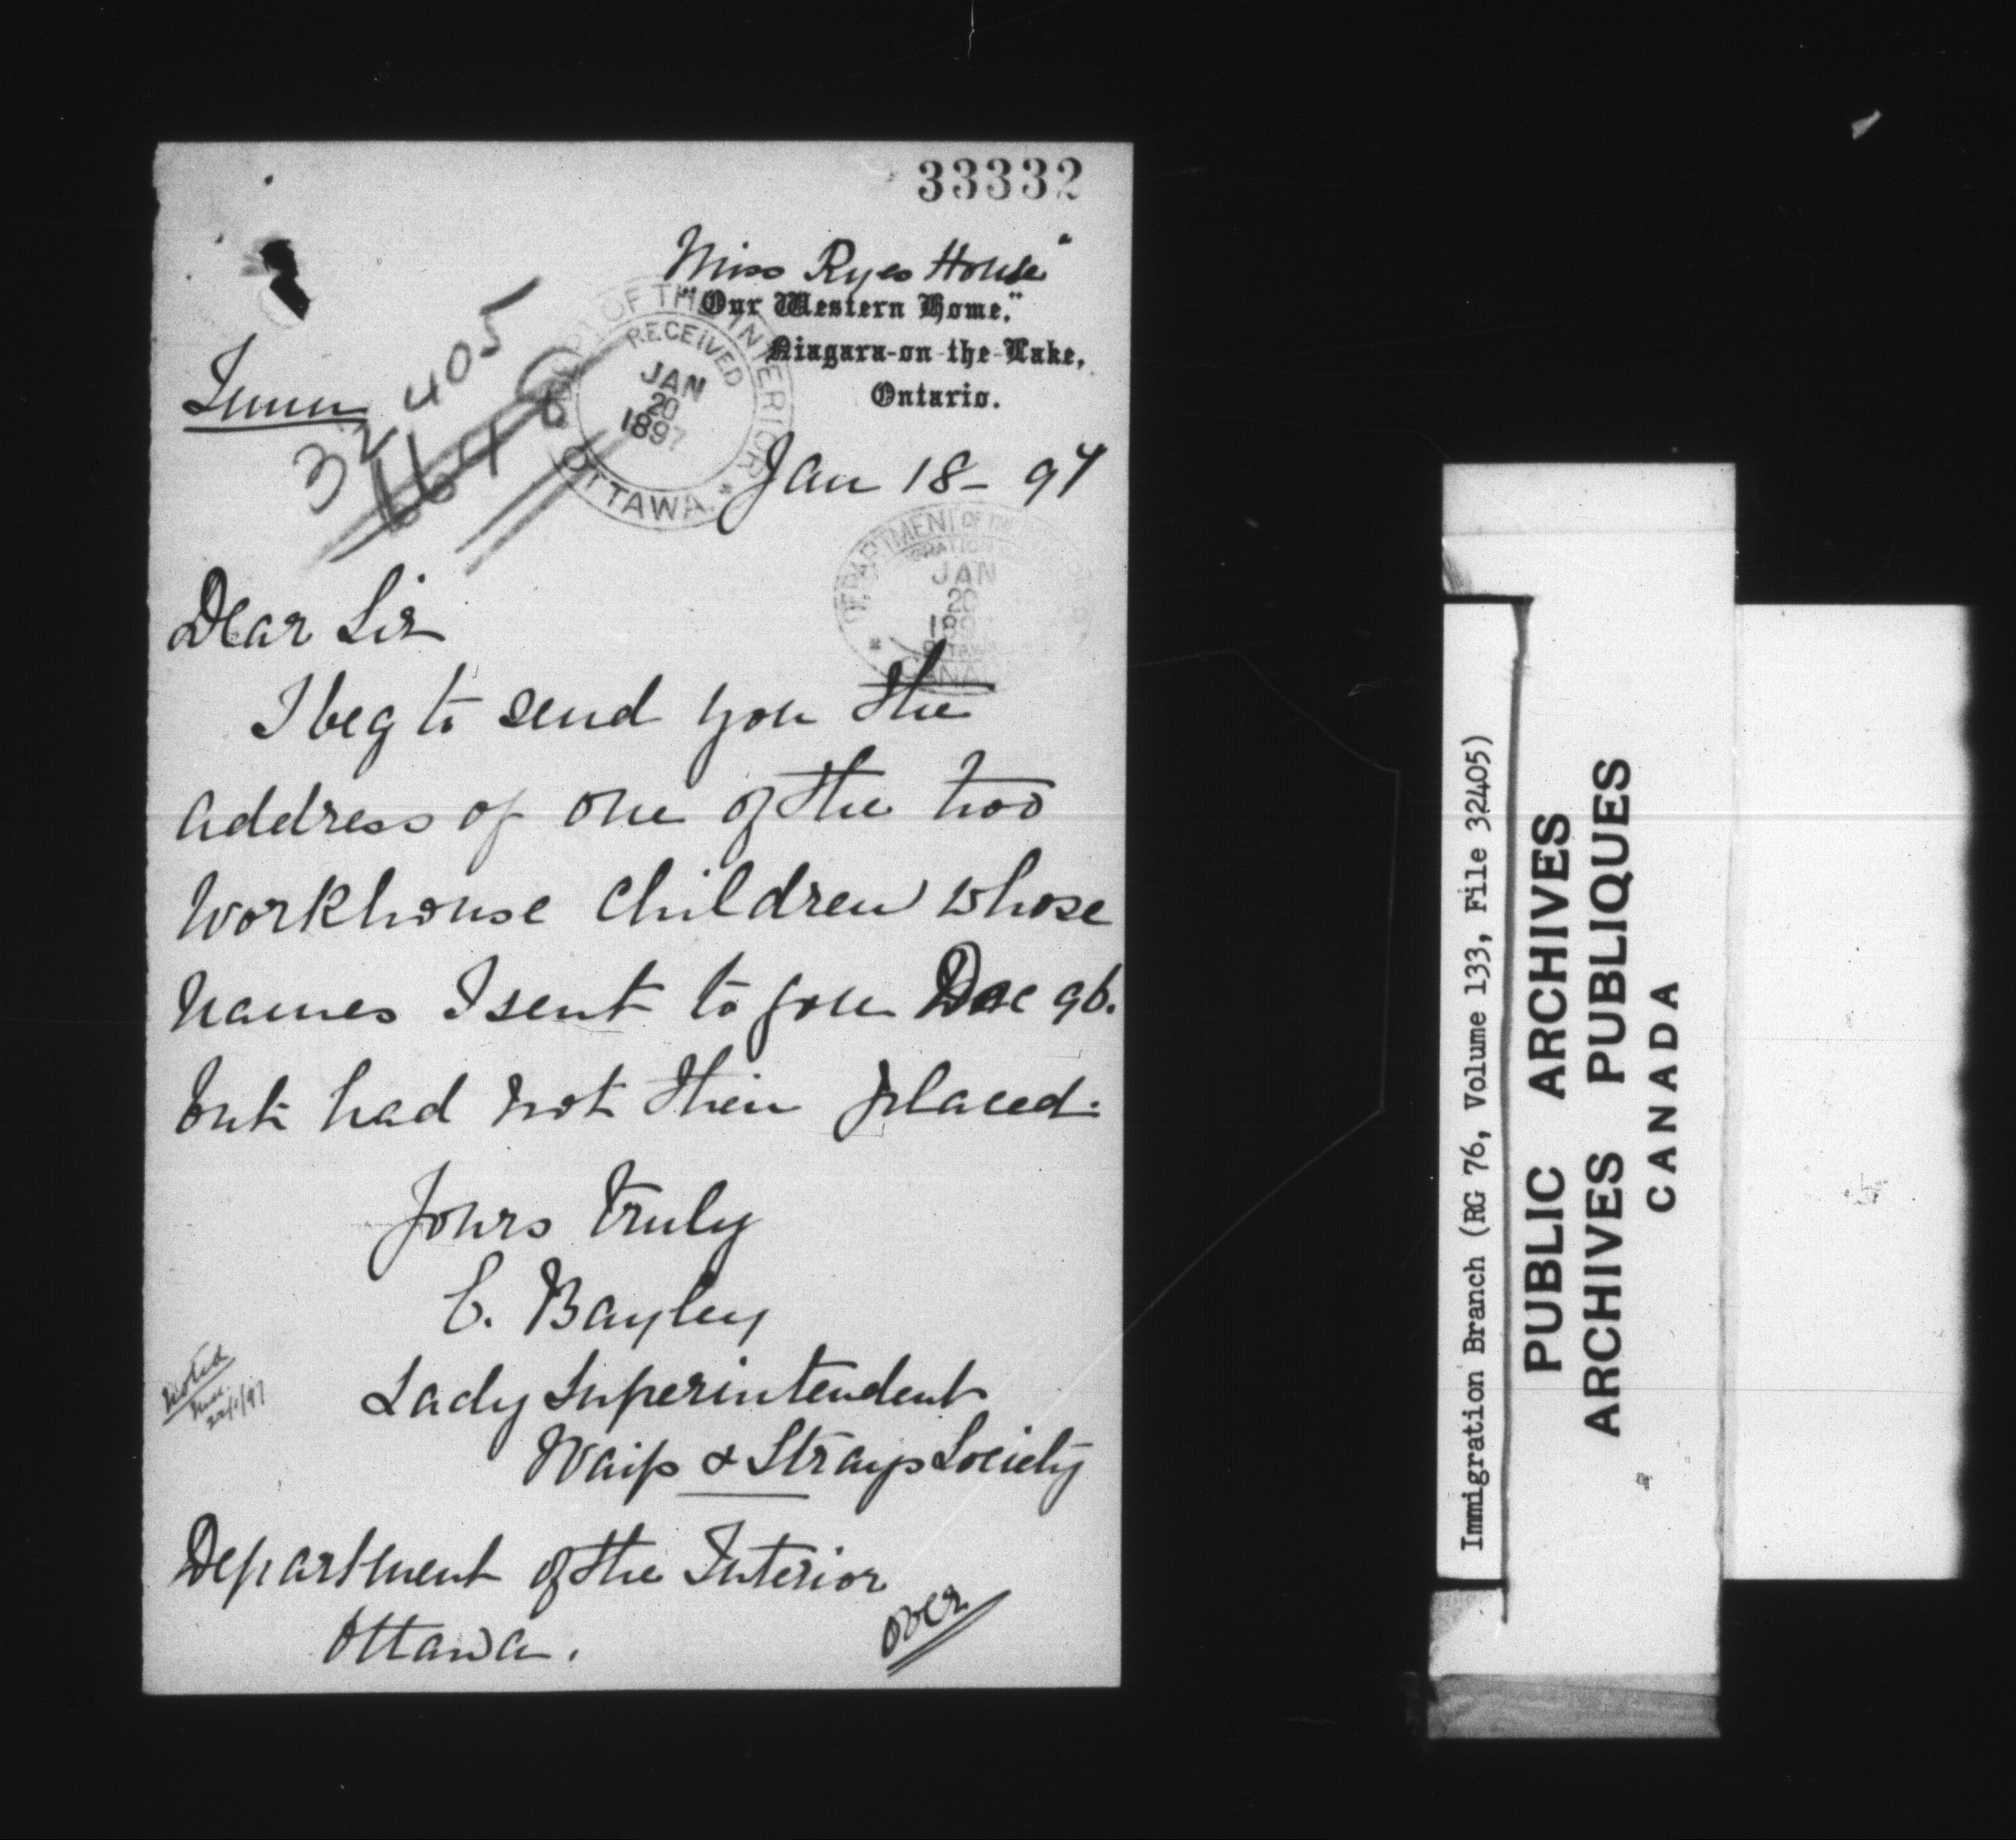 33332
"Miss Ryes House"
"Our Western Home,"
Niagara-on-the-Lake,
Ontario.
32405
DEPT OF THE INTERIOR
RECEIVED
JAN
20
1897
OTTAWA
Jan 18 - 97
DEPARTMENT OF THE
JAN
20
189
OTTAWA
CANADA
Dear Sir
I beg to send you the
address of one of the two
Workhouse Children whose
names I sent to you Dec 96.
but had not then placed.
Yours truly
E. Bayley
Lady Superintendent
Waifs & Strays Society
Noted
22/1/97
Department of the Interior
Ottawa.
over
Immigration Branch (RG 76, Volume 133, File 32405)
PUBLIC ARCHIVES
ARCHIVES PUBLIQUES
CANADA